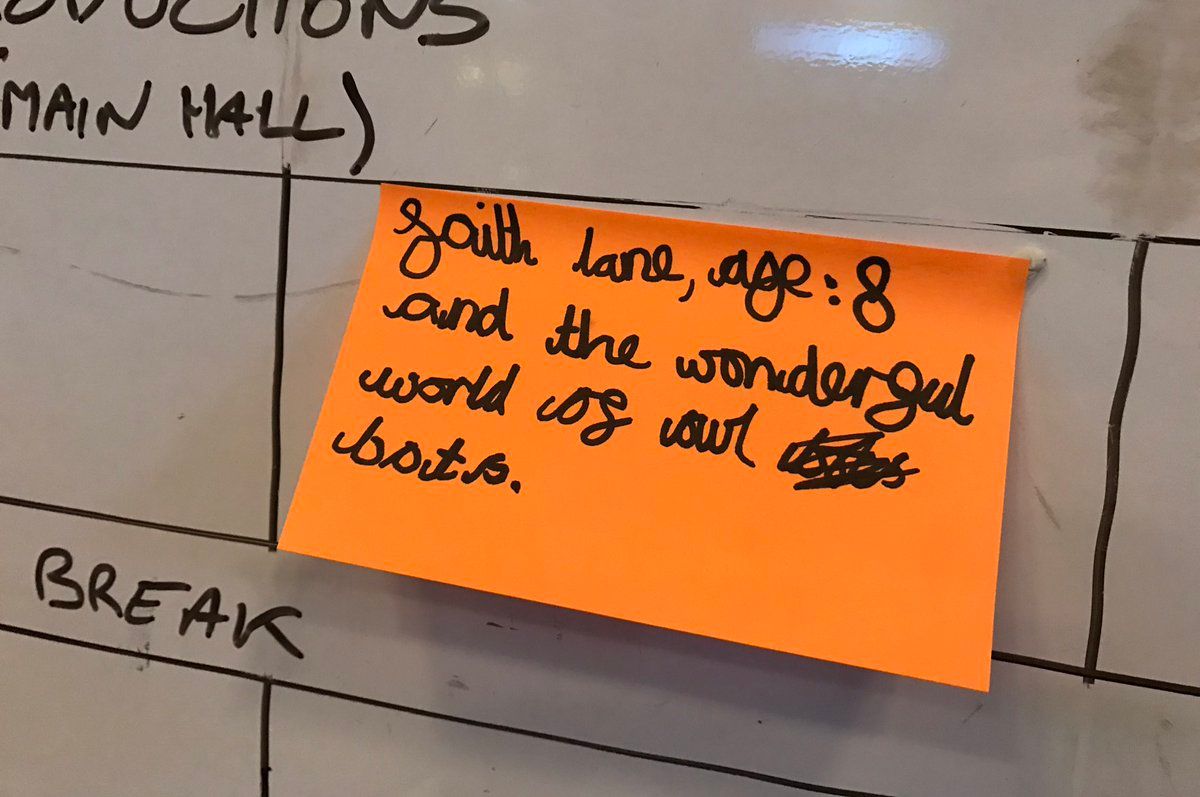 ODUCTIONS
(MAIN HALL)
faith lane, age: 8
and the wonderful
world of owl
bots.
BREAK